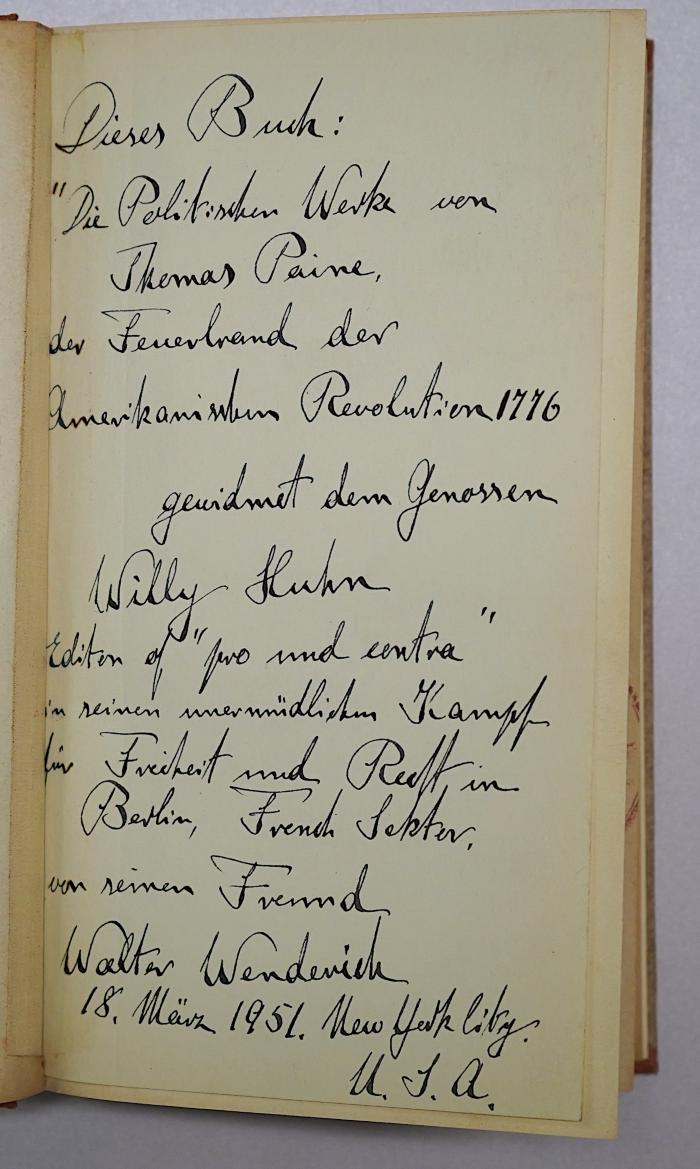 Dieses Buch:
"Die Politischen Werke von
Thomas Paine,
der Feuerbrand der
Amerikanischen Revolution 1776
gewidmet dem Genossen
Willy Huhn
Editor of "pro und contra"
in seinen unermüdlichen Kampf
für Freiheit und Recht in
Berlin, French Sektor,
von seinen Freund
Walter Wenderich
18. März 1951. New York City.
U. S. A.